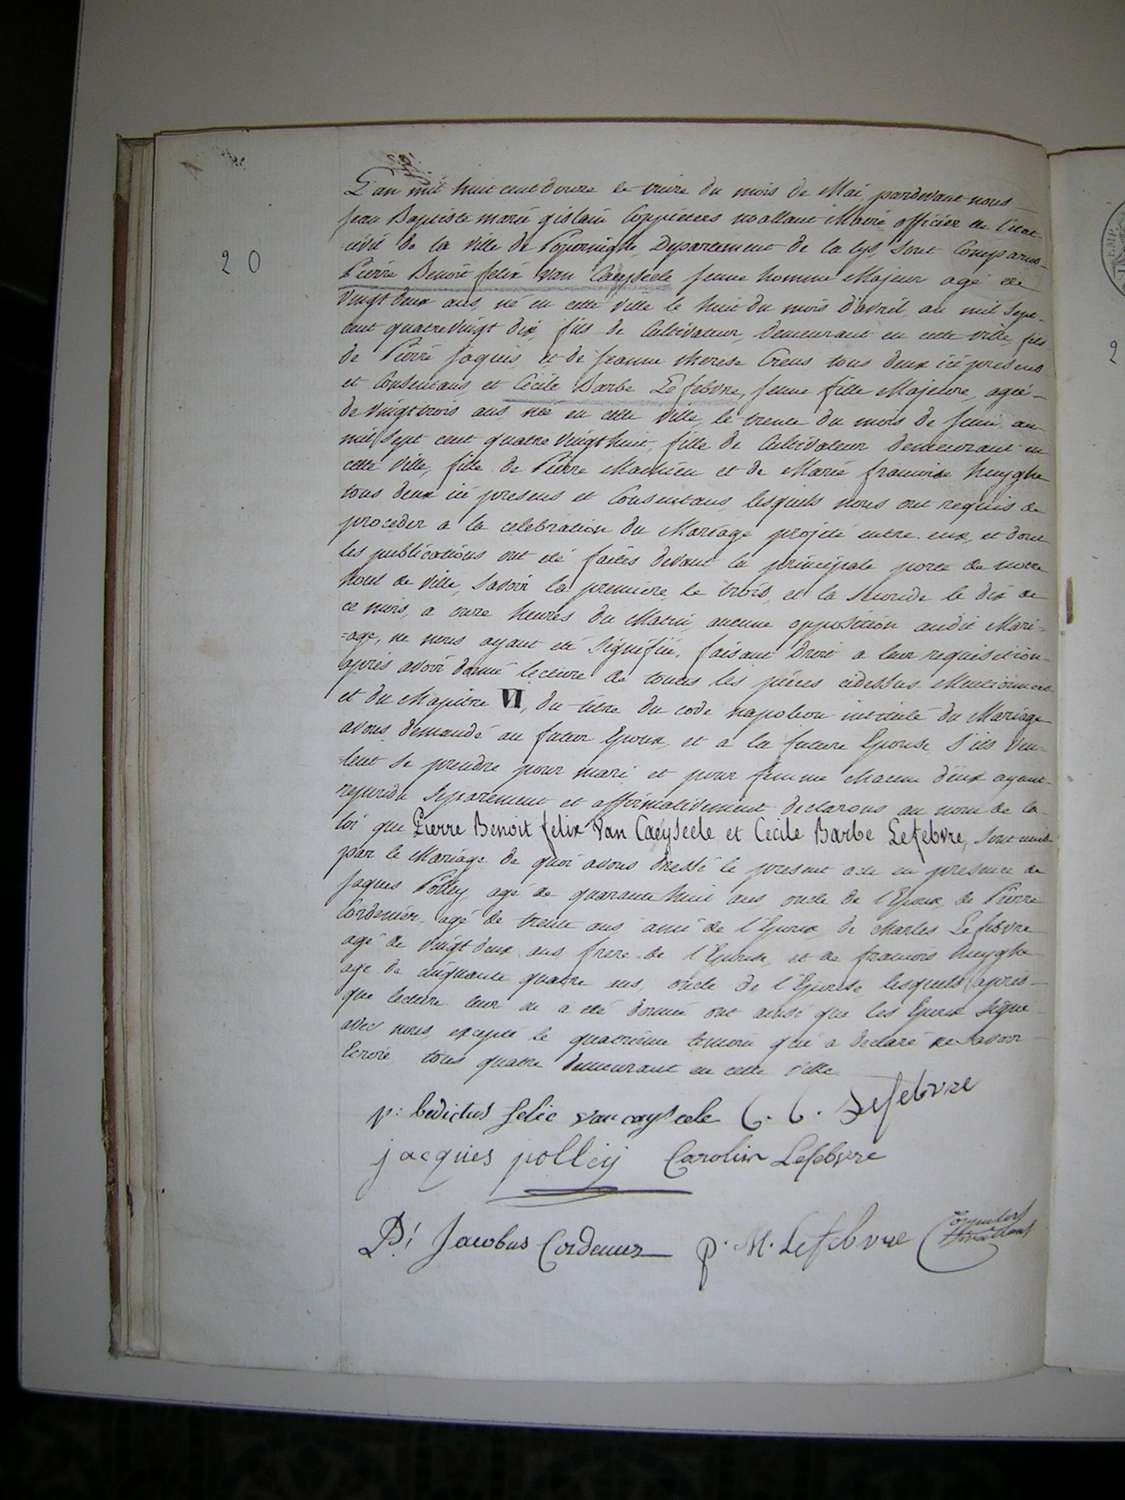 L'an mil huit cent douze le treize du mois de Mai pardevant nous
Jean Baptiste marie gislain Coppieters wallant Maire officier de l'état
civil de la ville de Poperinghe, Departement de la lys, sont Comparus
20
Pierre Benoit felix Van Caeyseele jeune homme Majeur agé de
vingt deux ans, né en cette ville le huit du mois d'avril, an mil sept
cent quatre vingt dix, fils de Cultivateur, demeurant en cette ville, fils
de Pierre Jaques, et de jeanne therese Creus tous deux ici presens
et Consentans, et Cécile Barbe Lefebvre, jeune fille Majeure, agée
de vingt trois ans née en cette ville, le trente du mois de Juin an
mil sept cent quatre vingt huit, fille de Cultivateur demeurant en
cette ville, fille de Pierre Mathieu et de Marie francoise huyghe
tous deux ici presens et Consentans, lesquels nous ont requis de
proceder a la celebration du Mariage projeté entre eux, et dont
les publications ont été faites devant la principale porte de notre
hotel de ville, savoir la premiere, le trois, et la seconde le dix de
ce mois, a onze heures du Matin, aucune opposition audit Mari-
=age, ne nous ayant été signifiée, faisant droit a leur requisition
après avoir donné lecture de toutes les pièces cidessus Mentionnées
et du Chapitre VI, du titre du code napoleon intitulé du Mariage
avons demandé au futur Epoux et a la future Epouse s'ils veu-
lent se prendre pour mari et pour femme chacun d'eux ayant
repondu separement et affirmativement declarons au nom de la
loi que Pierre Benoit felix Van Caeyseele et Cécile Barbe Lefebvre, sont unis
par le Mariage de quoi avons dressé le present acte en presence de
Jaques Polley, agé de quarante huit ans oncle de l'Epoux, de Pierre
Cordenier, agé de trente ans ami de l'Epoux, de Charles Lefebvre
agé de vingt deux ans frere de l'Epouse, et de francois huyghe
agé de cinquante quatre ans, oncle de l'Epouse lesquels après
que lecture leur en a été donnée ont ainsi que les Epoux signé
avec nous, excepté le quatrieme temoin qui a declaré ne savoir
Ecrire, tous quatre demeurant en cette ville
p: bedictus felic van cayseele C. C. Lefebvre
jacques polley Carolus Lefebvre
P: Jacobus Cordenier p. M. Lefebvre Coppieters